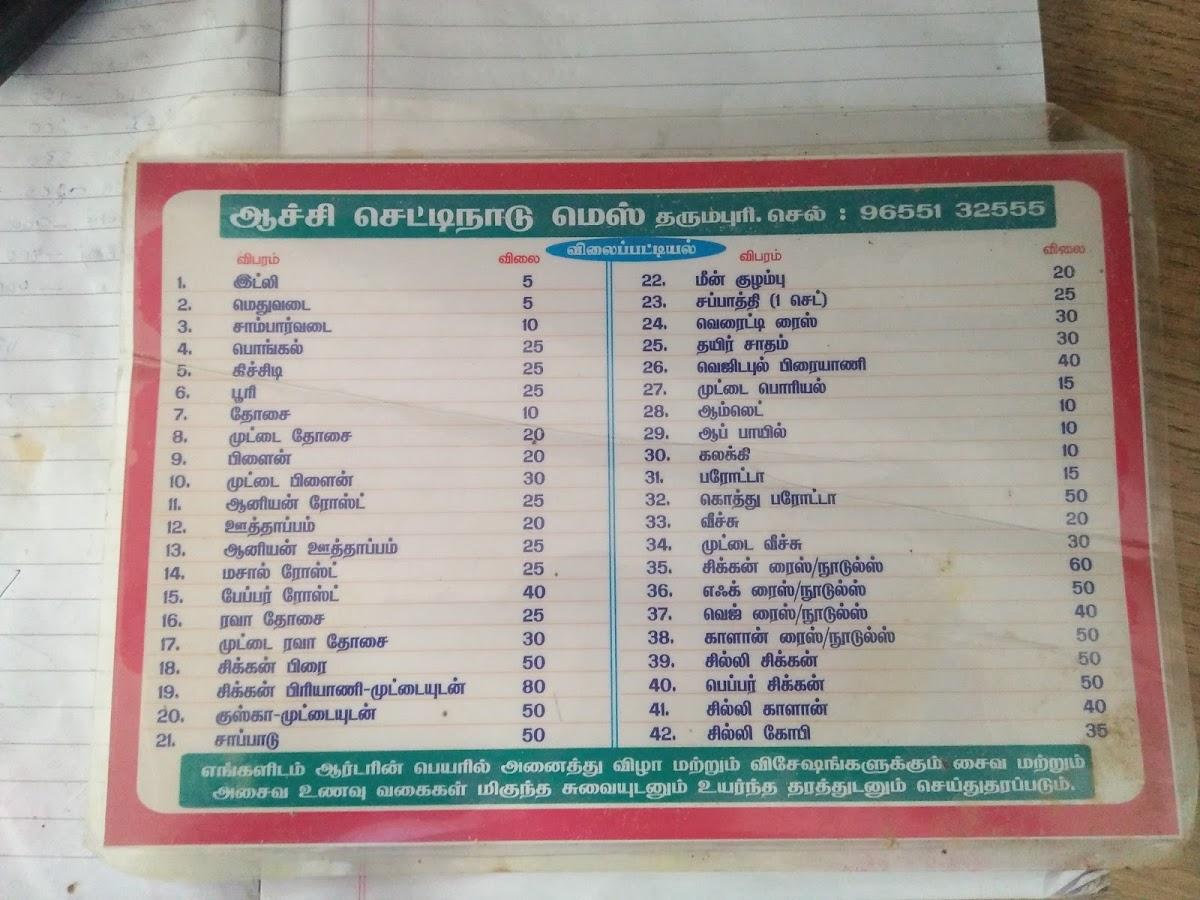 ஆச்சி செட்டிநாடு மெஸ் தருமபுரி. செல் : 96551 32555
விலைப்பட்டியல்
விபரம் விலை
1. இட்லி 5
2. மெதுவடை 5
3. சாம்பார்வடை 10
4. பொங்கல் 25
5. கிச்சிடி 25
6. பூரி 25
7. தோசை 10
8. முட்டை தோசை 20
9. பிளைன் 20
10. முட்டை பிளைன் 30
11. ஆனியன் ரோஸ்ட் 25
12. ஊத்தாப்பம் 20
13. ஆனியன் ஊத்தாப்பம் 25
14. மசால் ரோஸ்ட் 25
15. பேப்பர் ரோஸ்ட் 40
16. ரவா தோசை 25
17. முட்டை ரவா தோசை 30
18. சிக்கன் பிரை 50
19. சிக்கன் பிரியாணி-முட்டையுடன் 80
20. குஸ்கா-முட்டையுடன் 50
21. சாப்பாடு 50
விபரம் விலை
22. மீன் குழம்பு 20
23. சப்பாத்தி (1 செட்) 25
24. வெரைட்டி ரைஸ் 30
25. தயிர் சாதம் 30
26. வெஜிடபுல் பிரையாணி 40
27. முட்டை பொரியல் 15
28. ஆம்லெட் 10
29. ஆப் பாயில் 10
30. கலக்கி 10
31. பரோட்டா 15
32. கொத்து பரோட்டா 50
33. வீச்சு 20
34. முட்டை வீச்சு 30
35. சிக்கன் ரைஸ்/நூடுல்ஸ் 60
36. எஃக் ரைஸ்/நூடுல்ஸ் 50
37. வெஜ் ரைஸ்/நூடுல்ஸ் 40
38. காளான் ரைஸ்/நூடுல்ஸ் 50
39. சில்லி சிக்கன் 50
40. பெப்பர் சிக்கன் 50
41. சில்லி காளான் 40
42. சில்லி கோபி 35
எங்களிடம் ஆர்டரின் பெயரில் அனைத்து விழா மற்றும் விசேஷங்களுக்கும் சைவ மற்றும்
அசைவ உணவு வகைகள் மிகுந்த சுவையுடனும் உயர்ந்த தரத்துடனும் செய்துதரப்படும்.